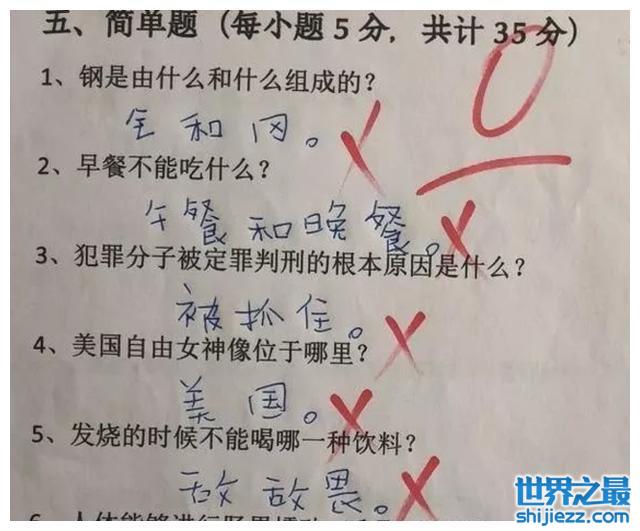 五、简单题（每小题5分，共计35分）
0
1、钢是由什么和什么组成的？
金和冈。
2、早餐不能吃什么？
午餐和晚餐。
3、犯罪分子被定罪判刑的根本原因是什么？
被抓住。
4、美国自由女神像位于哪里？
美国。
5、发烧的时候不能喝哪一种饮料？
敌敌畏。
世界之最
shijiezz.com